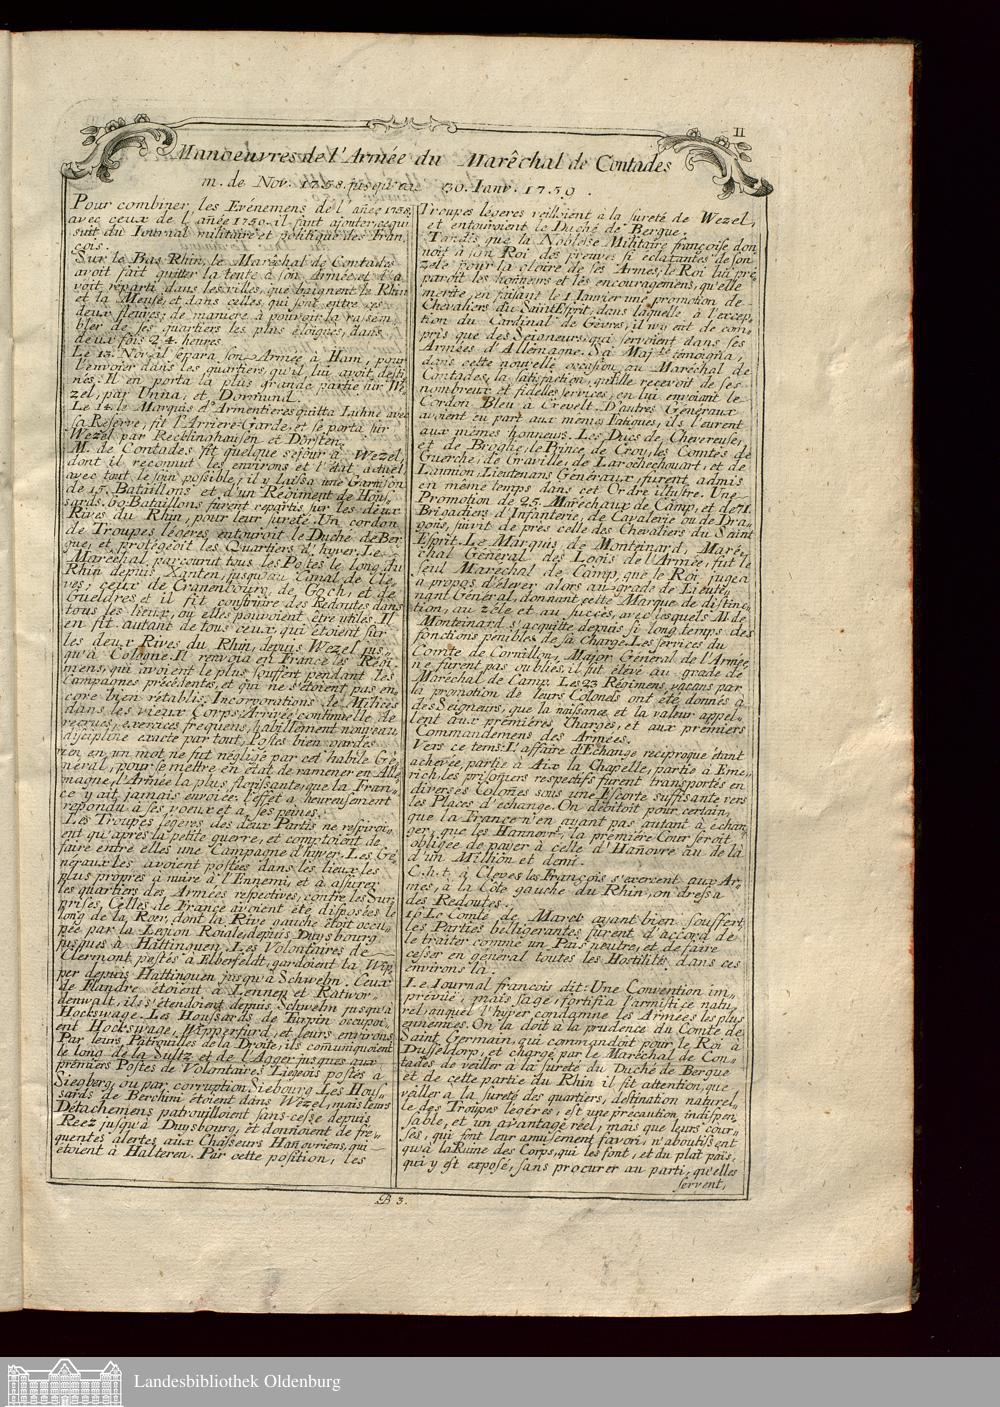 II
Manoeuvres de l'Armée du Marêchal de Contades
m. de Nov. 1758. jusqu'au 30. Janv. 1759.
Pour combiner les Evénemens de l'añee 1758,
avec ceux de l'añée 1759. il faut ajouter, ce qui
suit du Journal militaire et politique des Fran
çois.
Sur le Bas Rhin, le Maréchal de Contades
avoit fait quitter la tente à son Armée, et l'a
voit réparti dans les villes, que baignent le Rhin
et la Meuse, et dans celles, qui sont entre ces
deux fleuves; de maniere à pouvoir la rassem-
bler de ses quartiers les plus éloignés, dans
deux fois 24. heures.
Le 13. Nov. il sépara son Armée à Ham, pour
l'envoier dans les quartiers, qu'il lui avoit desti
nés. Il en porta la plus grande partie sur We
zel, par Unna, et Dortmund.
Le 14. le Marquis d'Armentieres quitta Luhne avec
sa Réserve, fit l'Arriere-Garde, et se porta sur
Wezel par Recklinghausen et Dorsten.
M. de Contades fit quelque séjour à Wezel,
dont il reconnut les environs et l'état actuel
avec tout le soin possible; il y laissa une Garnison
de 15. Bataillons et d'un Régiment de Hous-
sards. 69 Bataillons furent repartis sur les deux
Rives du Rhin, pour leur sureté. Un cordon
de Troupes légéres, entouroit le Duché de Ber
gue, et protégeoit les Quartiers d'hyver. Le
Maréchal parcourut tous les Postes le long du
Rhin depuis Xanten, jusqu'au Canal de Cle-
ves, ceux de Cranenbourg, de Goch, et de
Gueldres et il fit construire des Redoutes dans
tous les lieux, ou elles pouvoient être utiles. Il
en fit autant de tous ceux, qui étoient sur
les deux Rives du Rhin, depuis Wezel jus-
qu'à Cologne. Il renvoia en France les Régi-
mens, qui avoient le plus souffert pendant les
Campagnes précédentes, et qui ne s'étoient pas en-
core bien rétablis. Incorporations de Milices
dans les vieux Corps, Arrivée continuelle de
recrues, exercices frequens, habillement nouveau,
discipline exacte par tout, Postes bien gardés
rien en un mot ne fut négligé par cet habile Gé-
néral, pour se mettre en état de ramener en Alle
magne, l'Armée la plus florissante, que la Fran-
ce y ait jamais envoiée: l'effet a heureusement
repondu à ses voeux et à ses peines.
Les Troupes légeres des deux Partis ne respiroi-
ent qu'après la petite guerre, et comptoient de
faire entre elles une Campagne d'hyver. Les Gé-
néraux les avoient postées dans les lieux les
plus propres à nuire à l'Ennemi, et à assurer
les quartiers des Armées respectives, contre les Sur
prises. Celles de France avoient été disposées le
long de la Roer, dont la Rive gauche étoit occu-
pée par la Legion Roiale, depuis Duysbourg,
jusques à Hattinguen. Les Volontaires de
Clermont, postés à Elberfeldt, gardoient la Wip
per depuis Hattinguen jusqu'à Schwelm. Ceux
de Flandre étoient à Lennep et Ratvor-
denwalt, ils s'étendoient depuis Schwelm jusqu'à
Hockswage. Les Houssards de Turpin occupoi-
ent Hockswage, Wipperfurd, et leurs environs.
Par leurs Patrouilles de la Droite, ils cõmuniquoient
le long de la Sultz et de l'Agger jusques aux
premiers Postes de Volontaires Liegeois postés à
Siegberg, ou par corruption Siebourg. Les Hous-
sards de Berchini étoient dans Wezel, mais leurs
Détachemens patrouilloient sans-cesse depuis
Reez jusqu'à Duysbourg, et donnoient de fré-
quentes alertes aux Chasseurs Hanovriens, qui
étoient à Halteren. Par cette position, les
Troupes légeres veilloient à la sureté de Wezel,
et entouroient le Duché de Bergue.
Tandis que la Noblesse Militaire françoise don
noit à son Roi des preuves si éclatantes de son
zele pour la gloire de ses Armes, le Roi lui pré
paroit les honneurs et les encouragemens, qu'elle
merite, en faisant le 1 Janvier une promotion de
Chevaliers du Saint Esprit, dans laquelle, à l'excep-
tion du Cardinal de Gèvres, il n'y eût de com-
pris que des Seigneurs, qui servoient dans ses
Armées d'Allemagne. Sa Majté témoigna,
dans cette nouvelle occasion au Maréchal de
Contades, la satisfaction, qu'elle recevoit de ses
nombreux et fidelles services, en lui envoiant le
Cordon Bleu à Crevelt. D'autres Géneraux
avoient eu part aux mêmes Fatigues, ils l'eurent
aux mêmes honneurs. Les Ducs de Chevreuse,
et de Broglie, le Prince de Croy, les Comtes de
Guerche, de Graville, de Larochechouart, et de
Launion, Lieutenans Genéraux, furent, admis
en même temps dans cet Ordre illustre. Une
Promotion de 25. Maréchaux de Camp, et de 71.
Brigadiers d'Infanterie, de Cavalerie ou de Dra-
gons, suivit de près celle des Chevaliers du Saint
Esprit. Le Marquis de Monteinard, Maré-
chal Général des Logis de l'Armée, fut le
seul Maréchal de Camp, que le Roi jugea
à propos d'élever alors au grade de Lieute-
nant Général, donnant cette Marque de distinc-
tion, au zêle et au succès, avec lesquels M. de
Monteinard s'acquitte depuis si long temps des
fonctions pénibles de sa Charge. Les services du
Comte de Cornillon, Major Général de l'Armée,
ne furent pas oubliés, il fut élevé au grade de
Maréchal de Camp. Les 23 Régimens, vacans par
la promotion de leurs Colonels ont été donnés à
des Seigneurs, que la naissance et la valeur appel-
lent aux prémiéres Charges, et aux premiers
Commandemens des Armées.
Vers ce tems: l'affaire d'Echange réciproque étant
achevée, partie à Aix la Chapelle, partie à Eme-
rich, les prisoñiers respectifs furent transportés en
diverses Coloñes sous une Escorte suffisante vers
les Places d'échange. On débitoit pour certain,
que la France n'en ayant pas autant à échan
ger, que les Hannovr., la première Cour seroit
obligée de payer à celle d'Hañovre au de là
d'un Million et demi.
C.h.t. à Cleves les François s'exercent aux Ar-
mes, à la Côte gauche du Rhin, on dressa
des Redoutes.
16 Le Comté de Marck ayant bien souffert,
les Parties belligerantes furent d'accord de
le traiter comme un Païs neutre, et de faire
cesser en général toutes les Hostilités dans ces
environs là.
Le Journal francois dit: Une Convention im-
prévue, mais sage, fortifia l'armistice natu-
rel, auquel l'hyver condamne les Armées les plus
ennemies. On la doit à la prudence du Comte de
Saint Germain, qui commandoit pour le Roi à
Dusseldorp, et chargé par le Maréchal de Con-
tades de veiller à la sureté du Duché de Bergue
et de cette partie du Rhin il fit attention, que
veiller à la sureté des quartiers, destination naturel-
le des Troupes légéres, est une précaution indispen-
sable, et un avantage réel, mais que leurs cour-
ses, qui font leur amusement favori, n'aboutissent
qu'à la Ruine des Corps, qui les font, et du plat païs,
qui y est exposé, sans procurer au parti, qu'elles
servent,
B 3.
Landesbibliothek Oldenburg